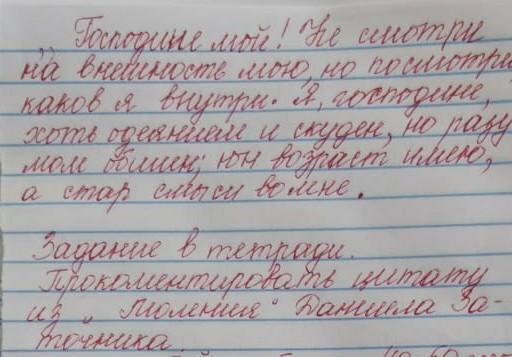 „ Господине мой! Не смотри
на внешность мою, но посмотри
каков я внутри. Я, господине,
хоть одеянием и скуден, но разу
мом обилен; юн возраст имею,
а стар смысл во мне.
Задание в тетради.
Прокоментировать цитату
из „Моления" Даниила За-
точника.